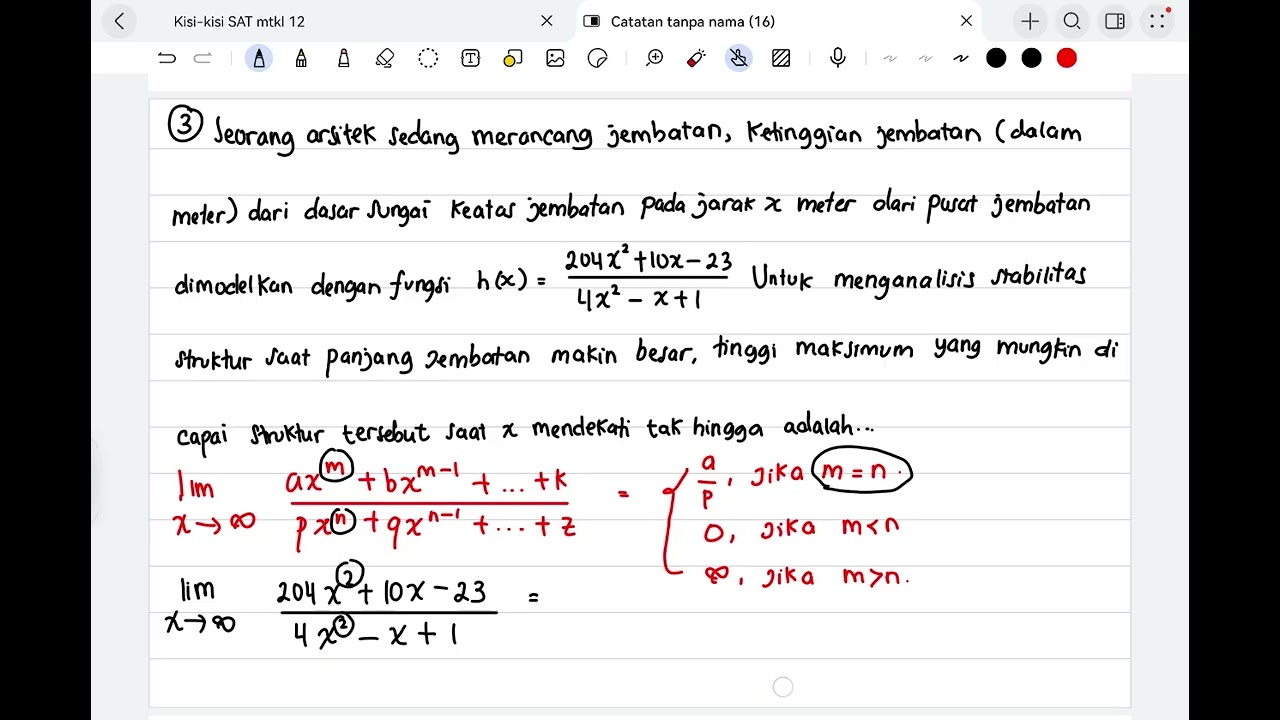 Kisi-kisi SAT mtkl 12
Catatan tanpa nama (16)
③ Seorang arsitek sedang merancang jembatan, Ketinggian jembatan (dalam
meter) dari dasar sungai keatas jembatan pada jarak x meter dari pusat jembatan
dimodelkan dengan fungsi h(x) = (204x² + 10x − 23)/(4x² − x + 1) Untuk menganalisis stabilitas
struktur saat panjang jembatan makin besar, tinggi maksimum yang mungkin di
capai struktur tersebut saat x mendekati tak hingga adalah...
lim x→∞ (ax^m + bx^(m−1) + ... + k)/(px^n + qx^(n−1) + ... + z) = { a/p, jika m = n.
0, jika m < n
∞, jika m > n.
lim x→∞ (204x² + 10x − 23)/(4x² − x + 1) =